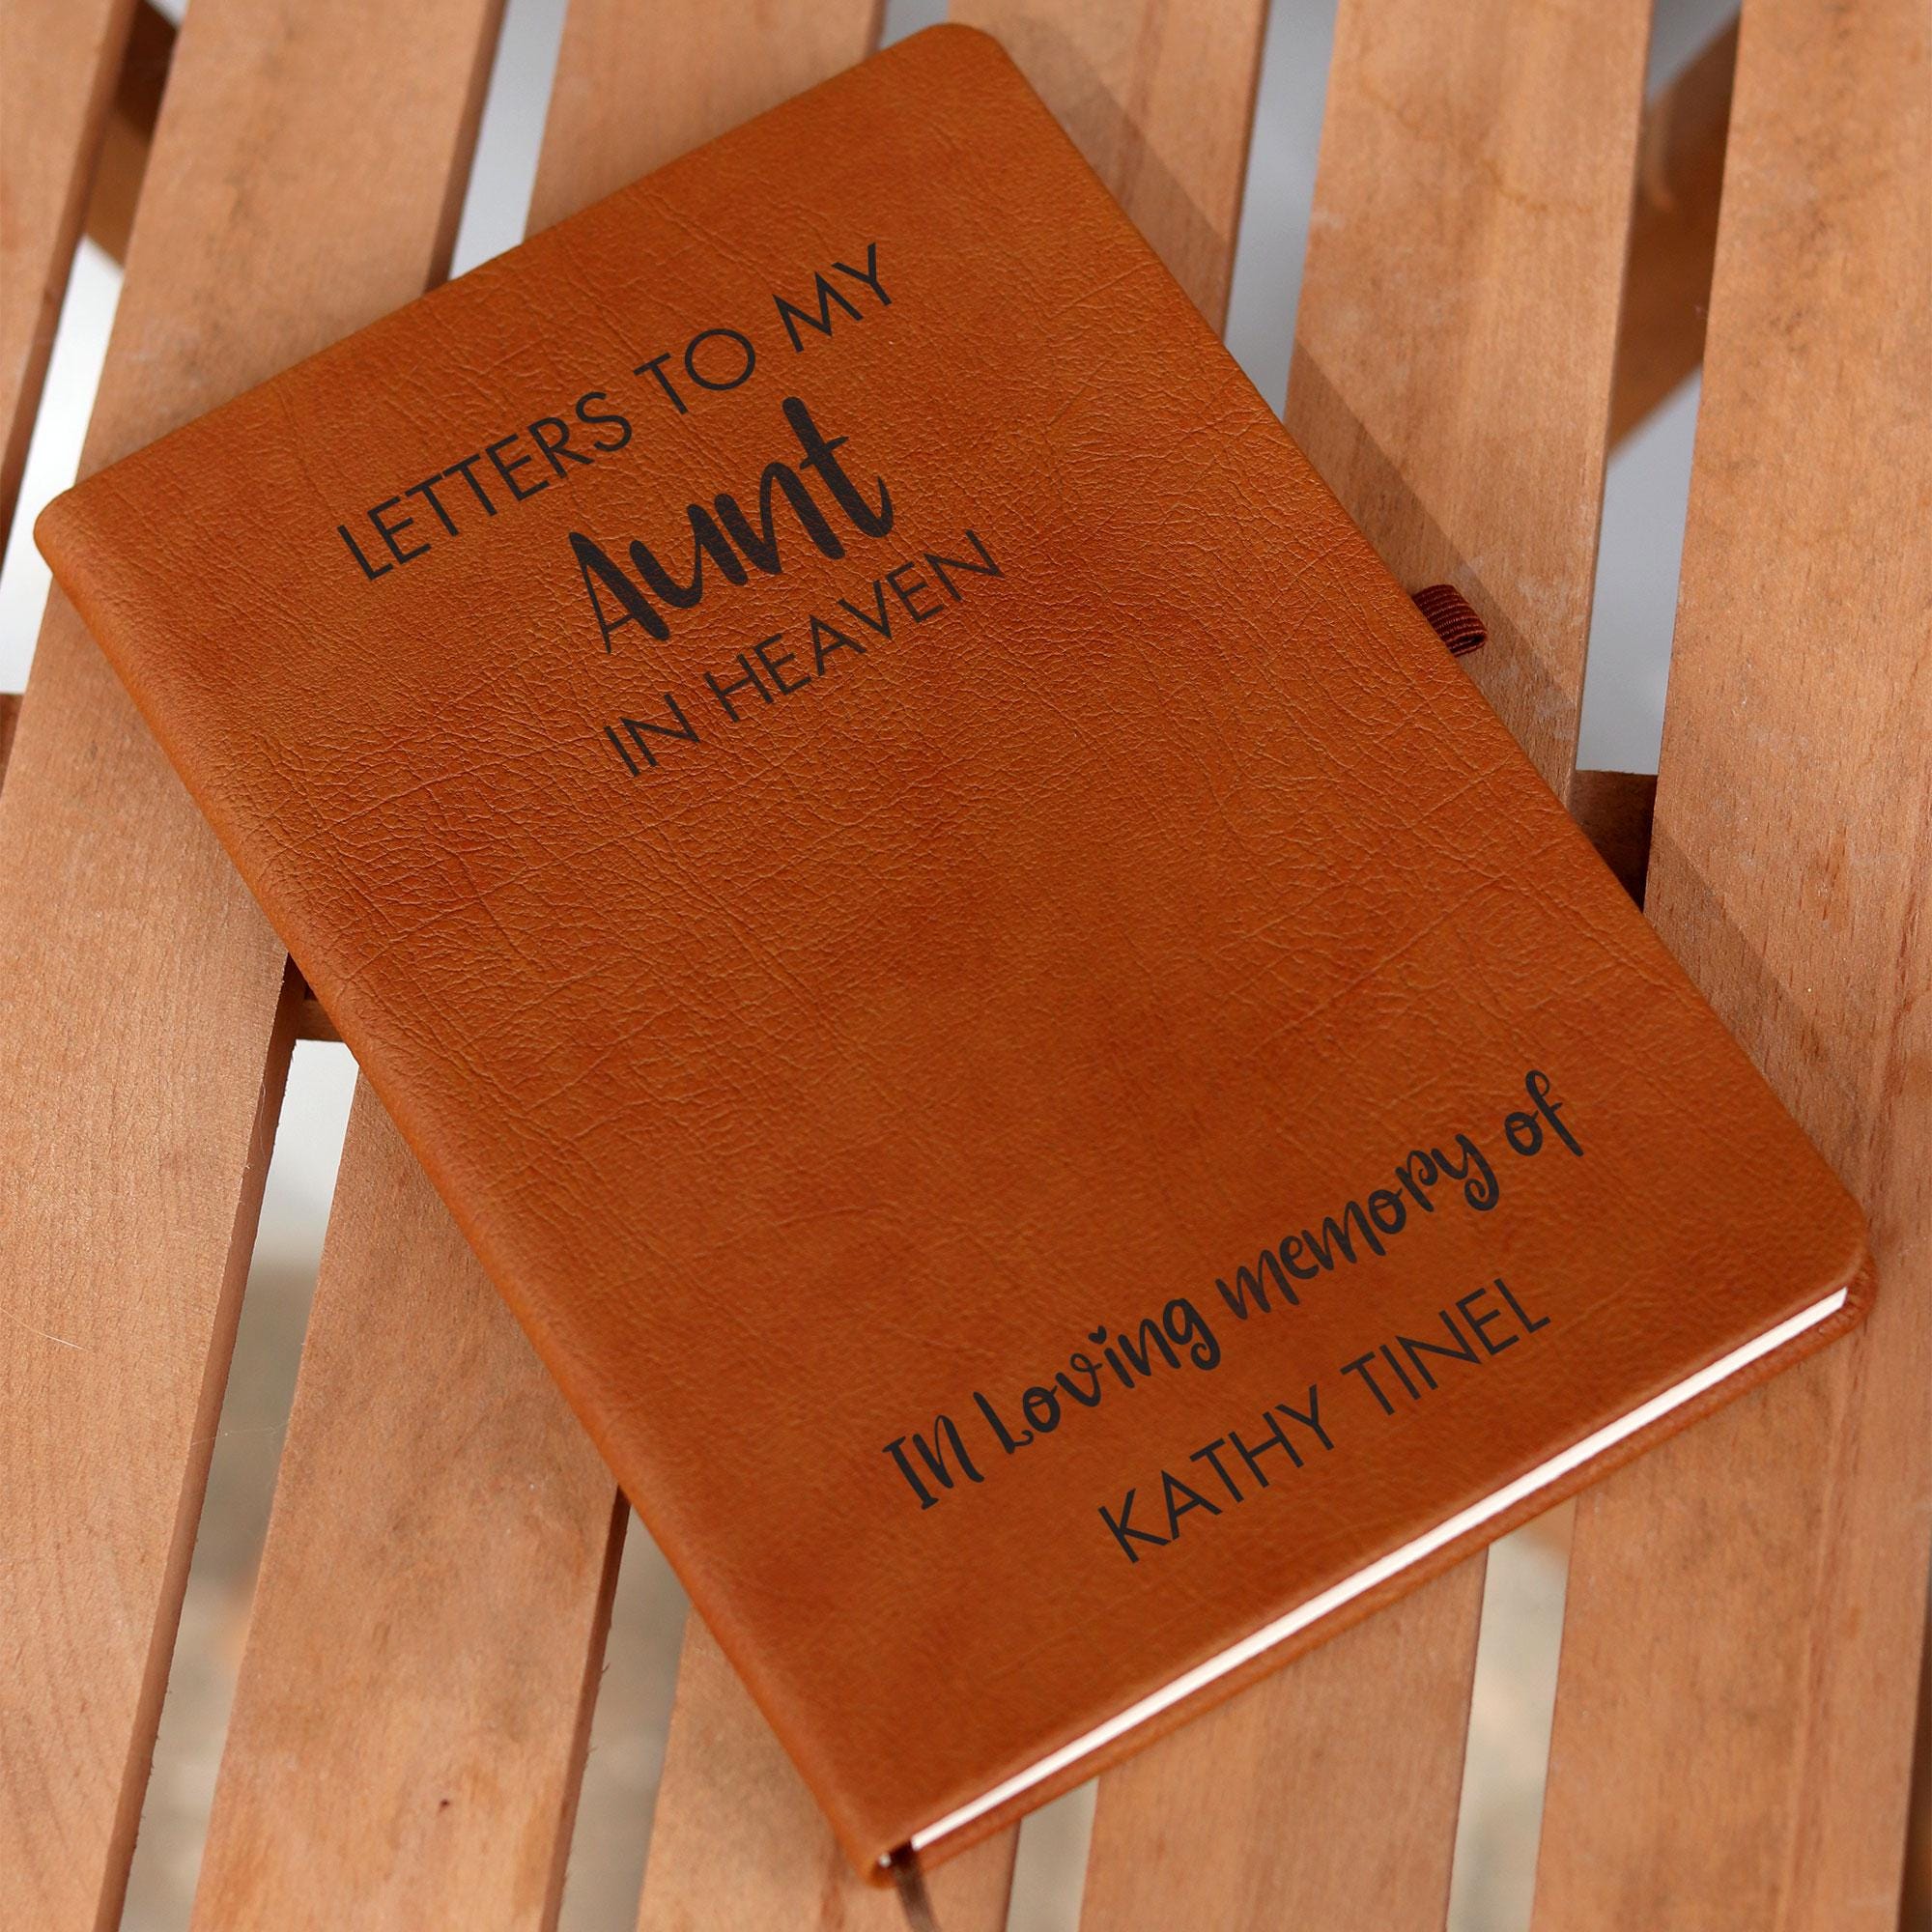 LETTERS TO MY
Aunt
IN HEAVEN
IN Loving memory of
KATHY TINEL